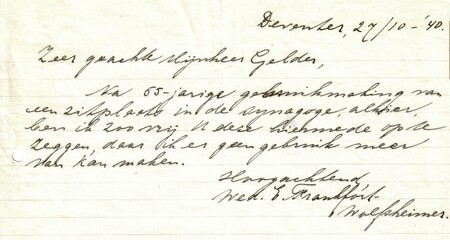 Deventer, 27/10-'40.
Zeer geachte Mijnheer Gelder,
Na 65-jarige gebruikmaking van
een zitplaats in de synagoge, alhier,
ben ik zoo vrij U deze hiermede op te
zeggen, daar ik er geen gebruik meer
van kan maken.
Hoogachtend
Wed. E. Frankfort-
Wolfsheimer.